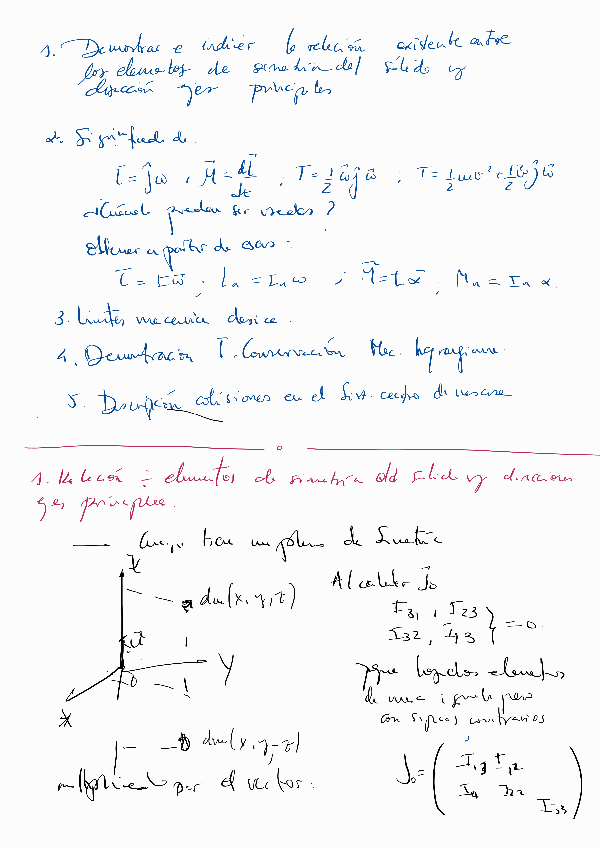 1. Demostrar e indicar la relación existente entre
los elementos de simetría del sólido y
dirección ejes principales
2. Significado de.
L⃗ = J̃ω , M⃗ = dL⃗/dt ; T = 1/2 ω⃗ J̃ ω⃗ ; T = 1/2 mv² + 1/2 ω⃗ J̃ ω⃗
¿Cuándo pueden ser usadas?
Obtener a partir de esas:
L⃗ = Iω⃗ ; Ln = In ω ; M⃗ = Iα⃗ ; Mn = In α.
3. Límites mecánica clásica.
4. Demostración T. Conservación Mec. lagrangiana.
5. Descripción colisiones en el Sist. centro de masas
1. Relación ÷ elementos de simetría del sólido y direcciones
ejes principales.
— Cuerpo tiene un plano de Simetría
Z
dm(x, y, z)
Al calcular J̃o
I31 , I23
I32 , I13 } = 0
O
Y
X
elementos
de masa iguales pero
con signos contrarios
dm(x, y, -z)
multiplicando por el vector:
Jo = ( I12
I22
I33 )